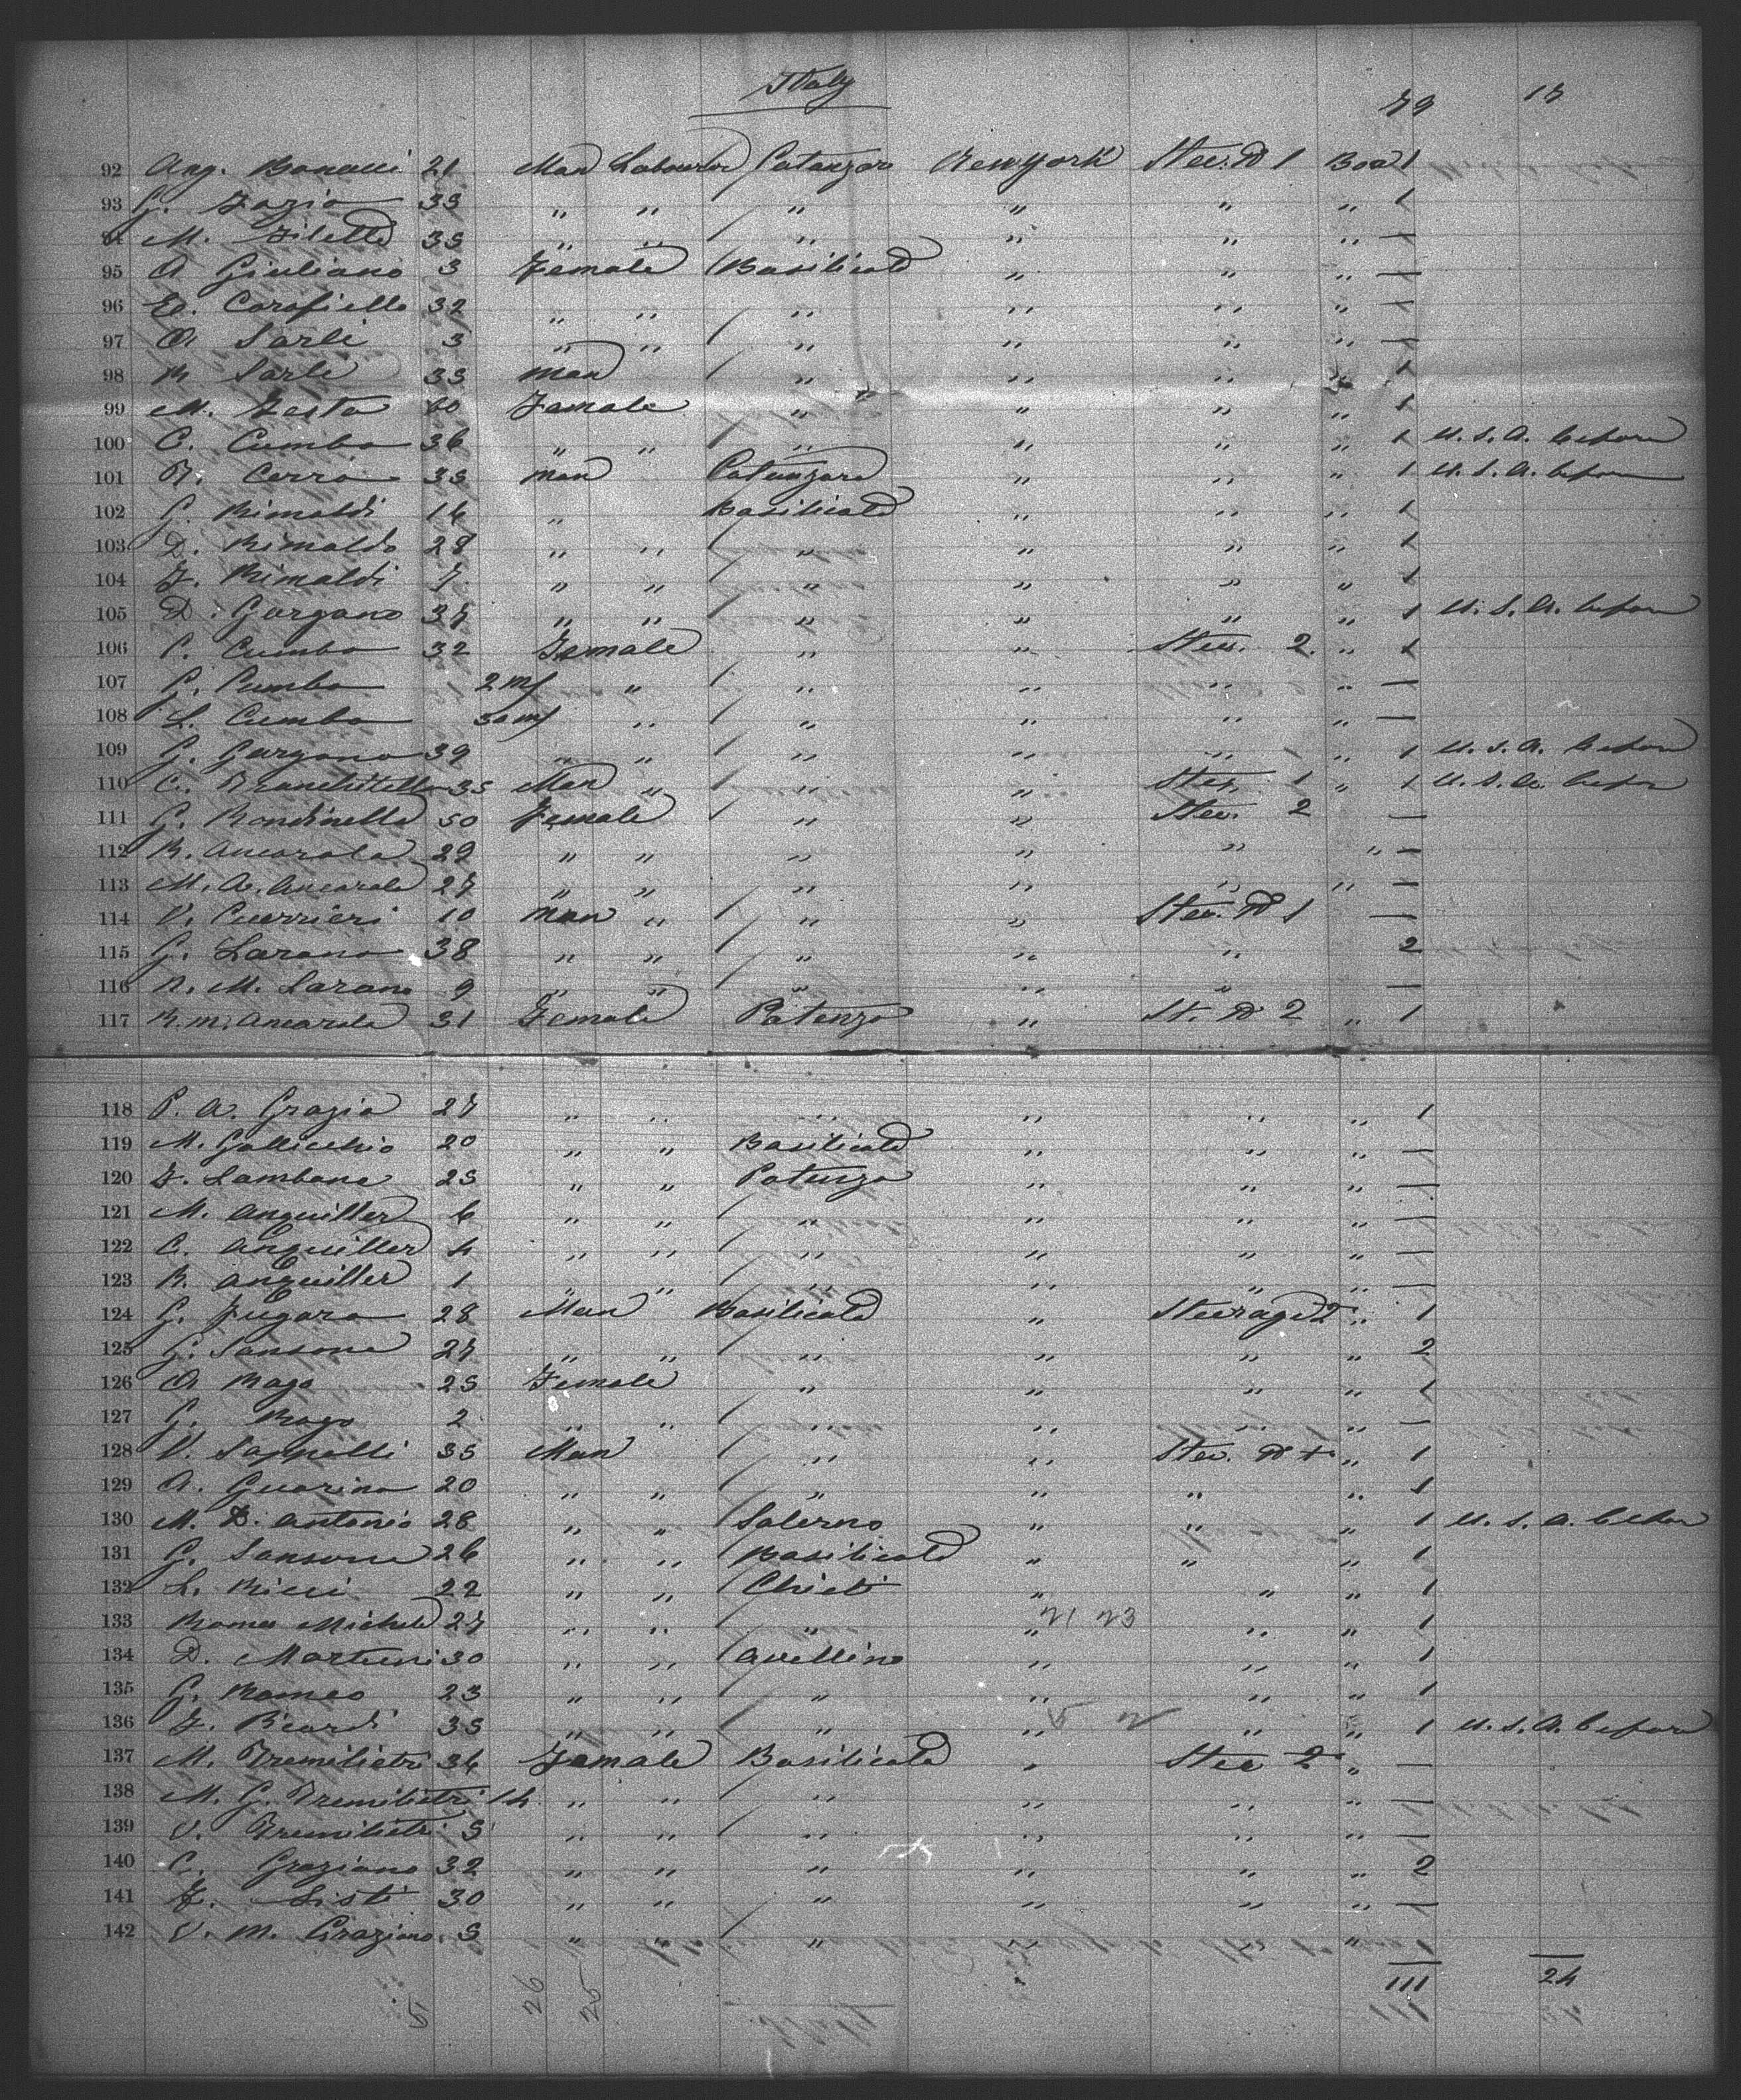 Italy
79 17
92 Ang. Bonacci 21 Man Labourer Catanzaro New york Stee. D 1 Box 1
93 G. Fazio 33 " " " " " " 1
94 M. Filette 35 " " " " " " —
95 A Giuliano 3 Female Basilicata " " " —
96 Ed. Carofiello 32 " " " " " " —
97 A Sarli 3 " " " " " " —
98 M Sarli 33 man " " " " 1
99 M. Testa 60 Female " " " " 1
100 C. Cumbo 36 " " " " " " 1 U.S.A. before
101 F. Cerra 35 man Catanzaro " " " 1 U.S.A. before
102 G. Rimaldi 16 " Basilicata " " " 1
103 D. Rimaldo 28 " " " " " " 1
104 F. Rimaldi 7 " " " " " " 1
105 D. Gargano 37 " " " " " " 1 U.S.A. before
106 C. Cumbo 32 Female " " Stee. 2 " 1
107 G. Cumbo 2 mf " " " " " —
108 L. Cumbo 30 mf " " " " " —
109 G. Gargano 39 " " " " " 1 " 1 U.S.A. before
110 C. Franchitella 35 Man " " " Stee. 1 " 1 U.S.A. before
111 G. Rondinella 50 Female " " Stee. 2 —
112 R. Ancarola 29 " " " " " " —
113 M. A. Ancarola 27 " " " " " " —
114 V. Cuerrieri 10 man " " " Stee. D 1 —
115 G. Larano 38 " " " " " 2
116 A. M. Larano 9 " " " " " —
117 R. M. Ancarola 31 Female Potenza " St. D 2 " 1
118 P. A. Grazia 27 " " " " " " 1
119 M. Gallicchio 20 " " Basilicata " " " —
120 F. Lambane 25 " " Potenza " " " —
121 M. Anquiller 6 " " " " " " —
122 C. Anquiller 4 " " " " " " —
123 R. Anquiller 1 " " " " " " —
124 G. Fugara 28 Man Basilicata " Steerage 2 " 1
125 G. Sansone 27 " " " " " " 2
126 A Rago 25 Female " " " " 1
127 G. Rago 2 " " " " " " —
128 V. Sappelli 35 Man " " Stee. D + " 1
129 A. Guarino 20 " " " " " " 1
130 M. D. Antonio 28 " " Salerno " " " 1 U.S.A. before
131 G. Sansone 26 " " Basilicata " " " 1
132 L. Ricci 22 " " Chieti " " " 1
133 Romeo Michele 27 " " " " 21 23 " " 1
134 D. Martuni 30 " " Avellino " " " 1
135 G. Romeo 23 " " " " " " 1
136 F. Ricardi 35 " " " " " " 1 U.S.A. before
137 M. Tremilietri 36 Female Basilicata " Stee 2 " —
138 M. G. Tremilietri 14 " " " " " " —
139 V. Tremilietri 5 " " " " " " —
140 C. Graziano 32 " " " " " " 2
141 F. Listi 30 " " " " " " —
142 V. M. Graziano 5 " " " " " " 1
111 24
5 26 25